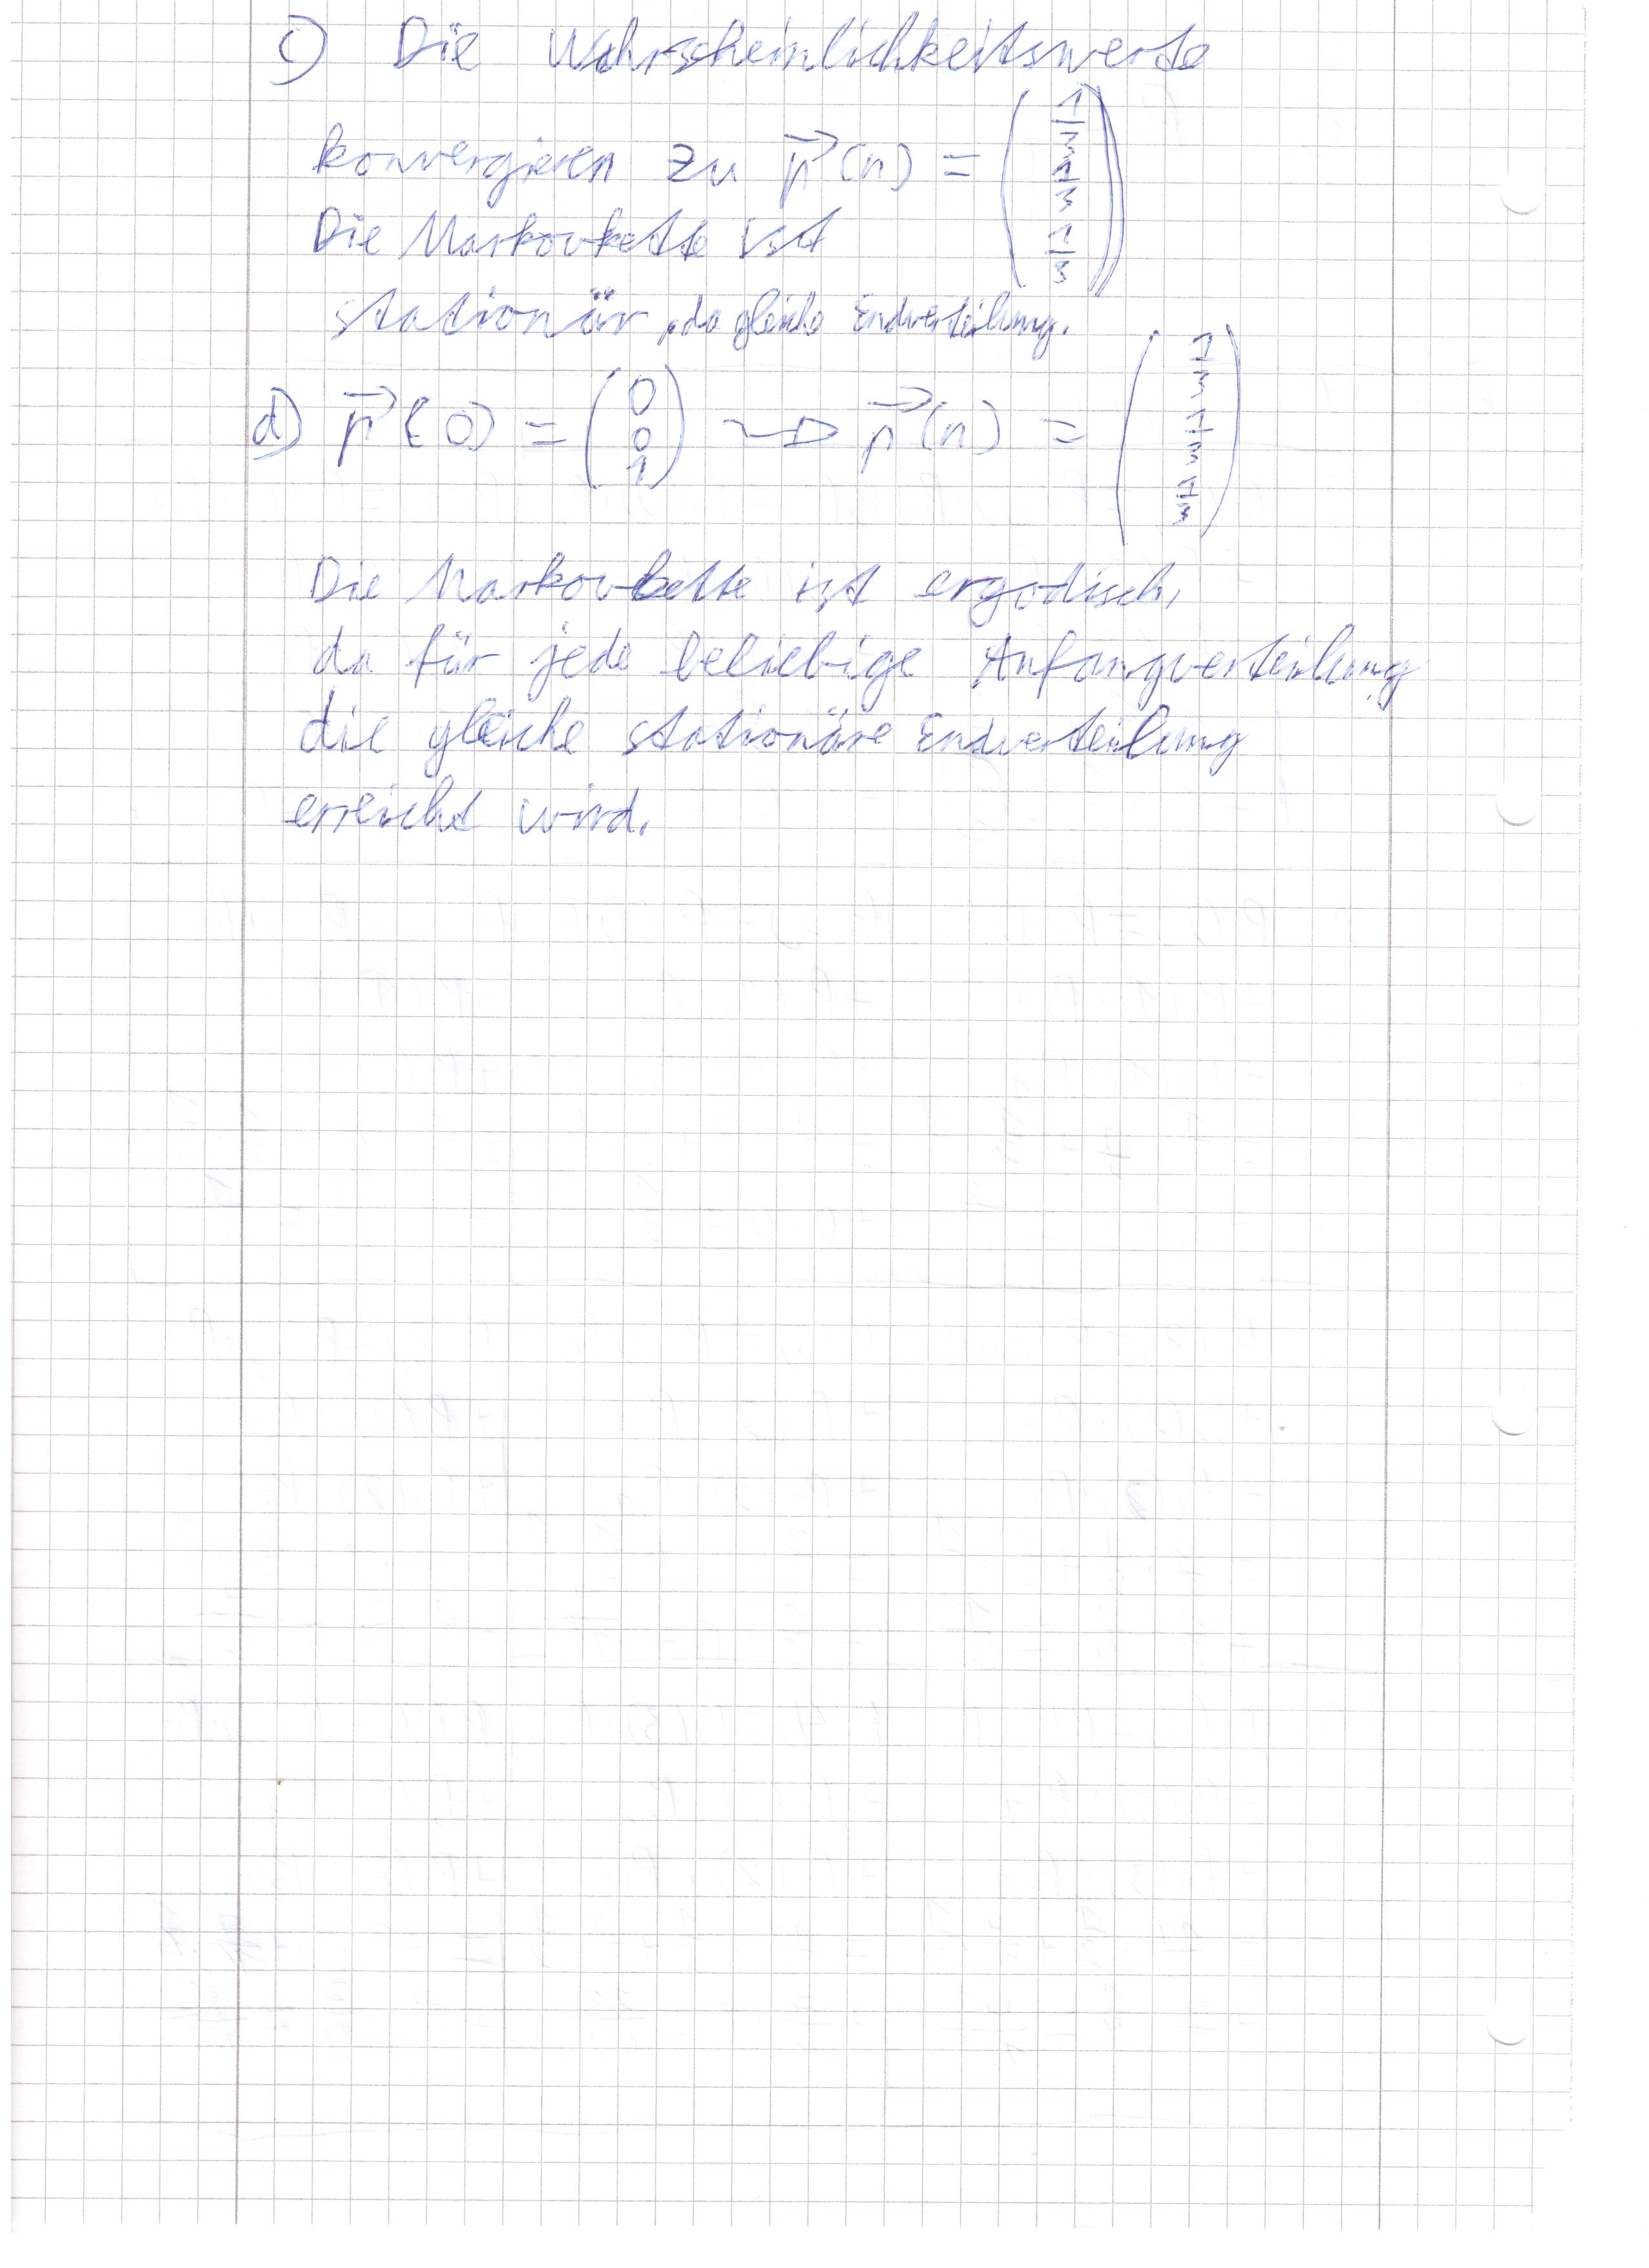 c) Die Wahrscheinlichkeitswerte
konvergieren zu p⃗(n) = (1/3 1/3 1/3)
Die Markovkette ist
stationär, da gleiche Endverteilung.
d) p⃗(0) = (0 0 1) ⇝ p⃗(n) = (1/3 1/3 1/3)
Die Markovkette ist ergodisch,
da für jede beliebige Anfangverteilung
die gleiche stationäre Endverteilung
erreicht wird.